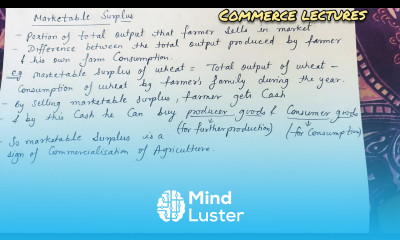 Commerce lectures
Marketable Surplus
- Portion of total output that farmer sells in market
- Difference between the total output produced by farmer
& his own farm Consumption.
eg Marketable Surplus of wheat = Total output of wheat -
Consumption of wheat by farmer's family during the year.
- By selling marketable surplus, farmer gets Cash
& by this Cash he Can buy producer goods & Consumer goods
(for further production) (for Consumption)
- So marketable Surplus is a
sign of Commercialisation of Agriculture.
Mind
Luster